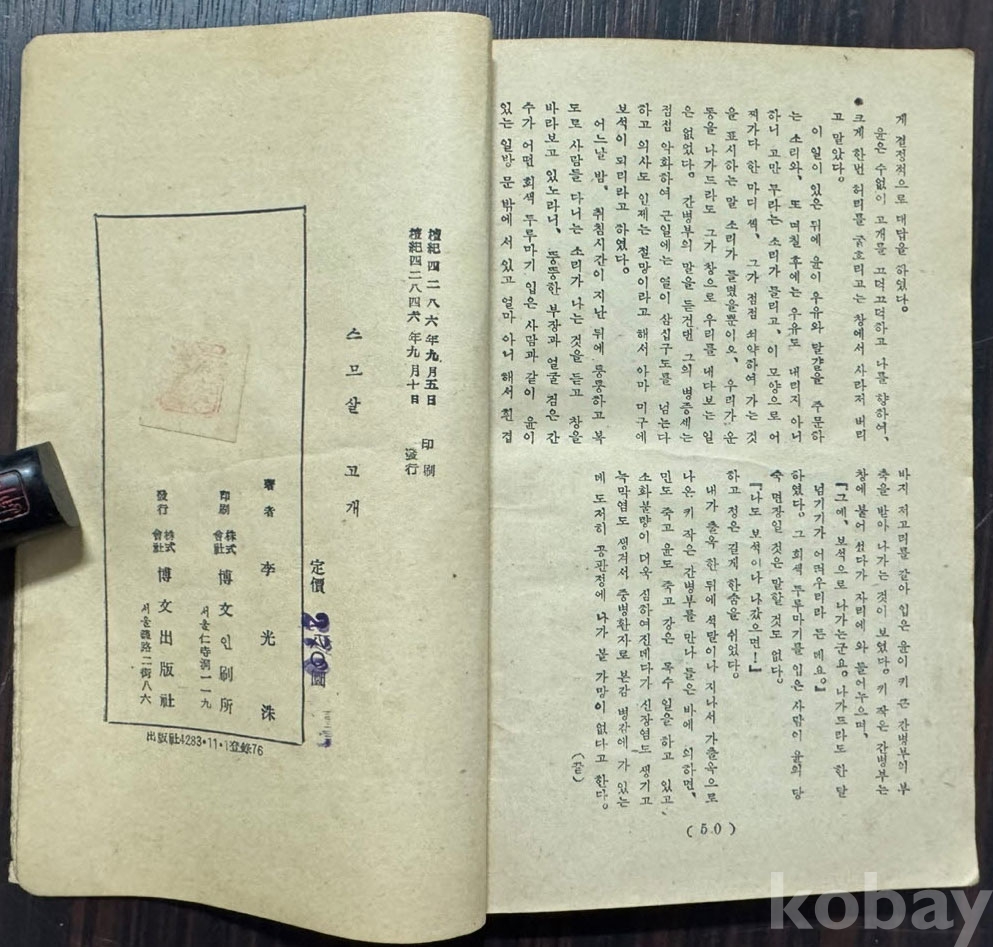 게 결정적으로 대답을 하였다。
윤은 수없이 고개를 끄덕끄덕하고 나를 향하여、
크게 한번 허리를 굽흐리고는 창에서 사라저 버리
고 말았다。
이 일이 있은 뒤에 윤이 우유와 달걀을 주문하
는 소리와、또 며칠 후에는 우유도 내리지 아니
하니 고만 두라는 소리가 들리고、이 모양으로 어
쩌가다 한 마디 씩、그가 점점 쇠약하여 가는 것
을 표시하는 말 소리가 들렸을뿐이오、우리가 운
동을 나가드라도 그가 창으로 우리를 내다보는 일
은 없었다。간병부의 말을 듣건댄 그의 병증세는
점점 악화하여 근일에는 열이 삼십구도를 넘는다
하고 의사도 인제는 절망이라고 해서 아마 미구에
보석이 되리라고 하였다。
어느날 밤、취침시간이 지난 뒤에 퉁퉁하고 복
도로 사람들 다니는 소리가 나는 것을 듣고 창을
바라보고 있노라니、뚱뚱한 부장과 얼굴 검은 간
수가 어떤 회색 두루마기 입은 사람과 같이 윤이
있는 일방 문 밖에 서 있고 얼마 아니 해서 흰 겹
바지 저고리를 갈아 입은 윤이 키 큰 간병부의 부
축을 받아 나가는 것이 보였다。키 작은 간병부는
창에 붙어 섰다가 자리에 와 들어누으며、
『그예、보석으로 나가는군요。나가드라도 한 달
넘기기가 어려우리라 든데요。』
하였다。그 회색 두루마기를 입은 사람이 윤의 당
숙 면장일 것은 말할 것도 없다。
『나도 보석이나 나갔으면!』
하고 정은 길게 한숨을 쉬었다。
내가 출옥 한 뒤에 석달이나 지나서 가출옥으로
나온 키 작은 간병부를 만나 들은 바에 의하면、
민도 죽고 윤도 죽고 강은 목수 일을 하고 있고、
소화불량이 더욱 심하여진데다가 신장염도 생기고
늑막염도 생겨서 중병환자로 본감 병감에 가 있는
데 도저히 공판정에 나가 볼 가망이 없다고 한다。
(끝)
(50)
檀紀四二八六年九月五日 印刷
檀紀四二八四六年九月十日 發行
스므살 고개
定價 圜
著者 李光洙
印刷 株式會社 博文인刷所
서울仁寺洞一一九
發行 株式會社 博文出版社
서울鍾路二街八六
出版社4283·11·1登錄76
kobay